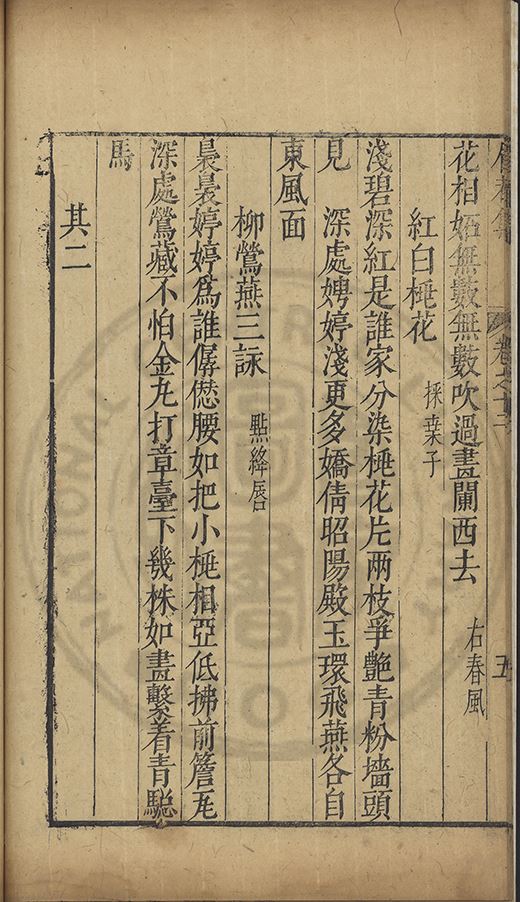 卷之十二
五
花相妬無數無數吹過畫闌西去 右春風
紅白桃花 採桑子
淺碧深紅是誰家分染桃花片兩枝爭艷青粉墻頭
見 深處娉婷淺更多嬌倩昭陽殿玉環飛燕各自
東風面
柳鶯燕三詠 點絳唇
裊裊婷婷為誰僝僽腰如把小桃相亞低拂前簷瓦
深處鶯藏不怕金丸打章臺下幾株如畫繫着青驄
馬
其二